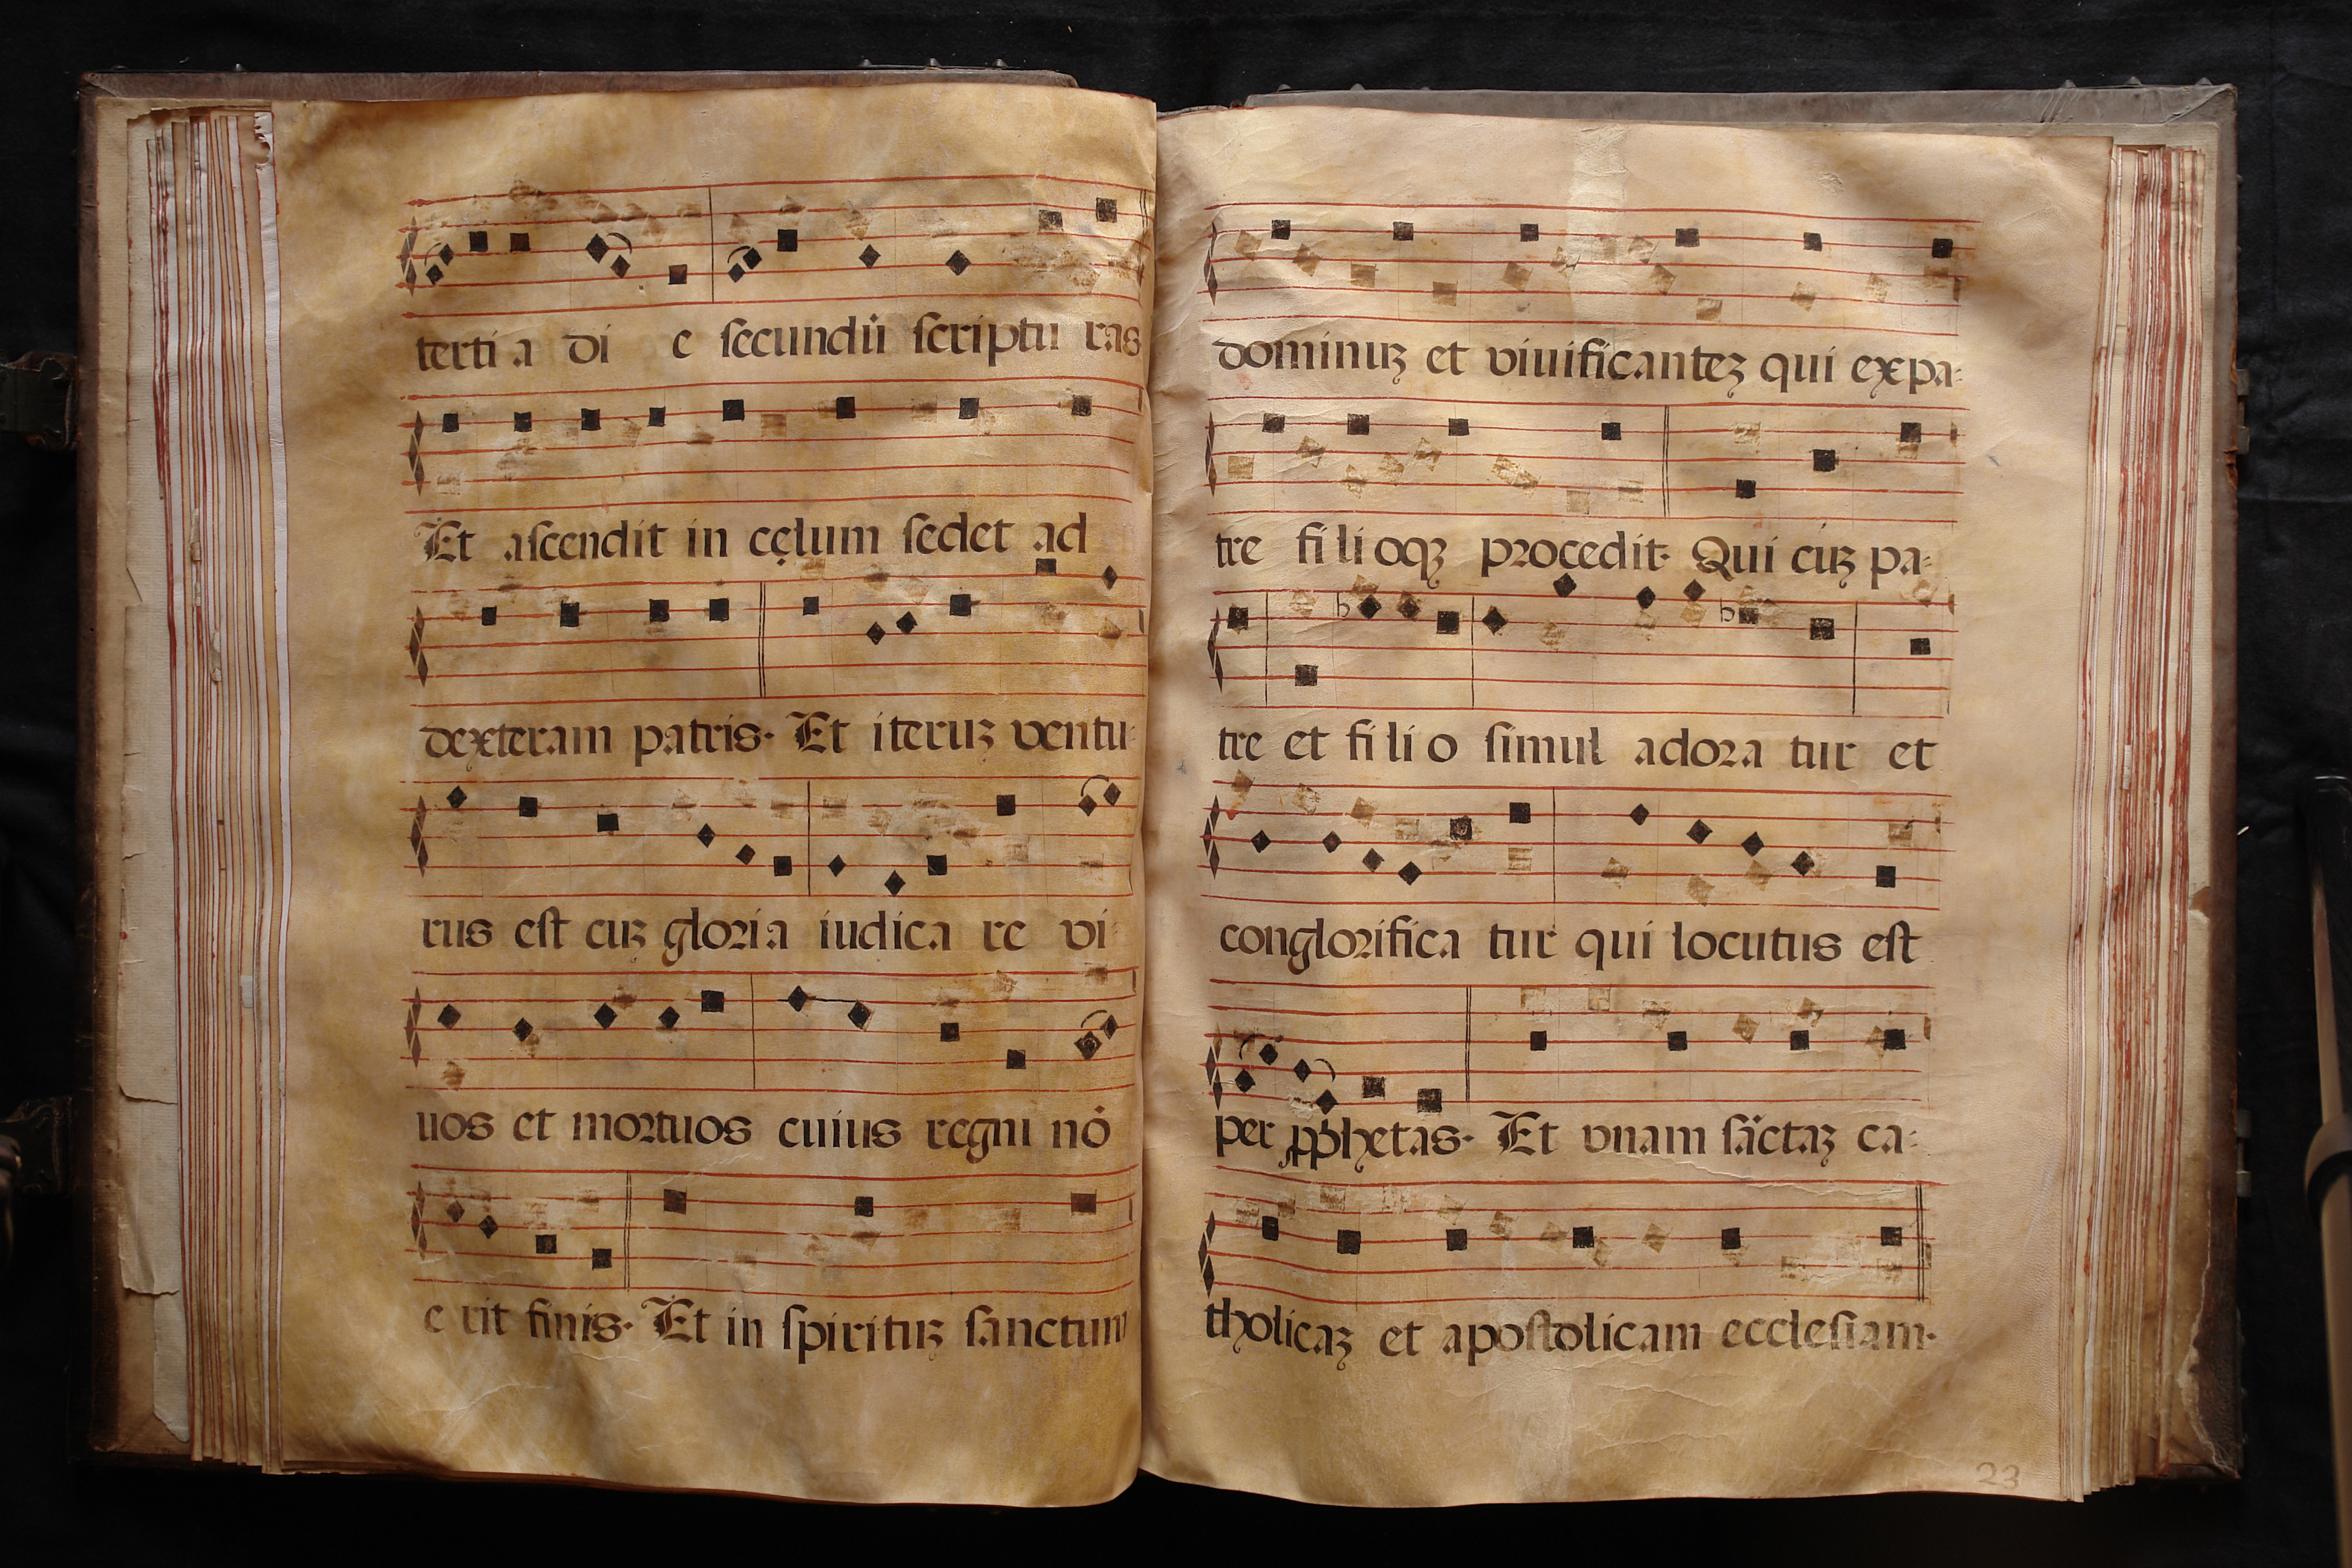 terti a di e secundū scriptu ras
Et ascendit in cęlum sedet ad
dexteram patris. Et iteruꝫ ventu:
rus est cuꝫ gloria iudica re vi
uos et mortuos cuius regni nō
e rit finis. Et in spirituꝫ sanctum
dominuꝫ et viuificanteꝫ qui ex pa:
tre fi li oqꝫ procedit. Qui cuꝫ pa:
tre et fi li o simul adora tur et
conglorifica tur qui locutus est
per ꝓphetas. Et vnam sāctaꝫ ca:
tholicaꝫ et apostolicam ecclesiam.
23